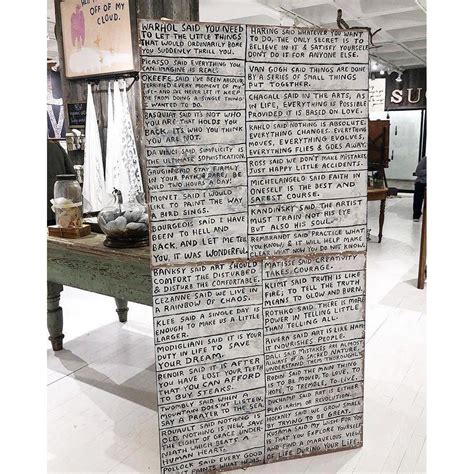 MY HEAD
OUT OF MY CLOUD
SUC
WARHOL SAID YOU NEED
TO LET THE LITTLE THINGS
THAT WOULD ORDINARILY BORE
YOU SUDDENLY THRILL YOU.
PICASSO SAID EVERYTHING YOU
CAN IMAGINE IS REAL.
OKEEFE SAID I'VE BEEN ABSOLUTELY
TERRIFIED EVERY MOMENT OF MY
LIFE AND I'VE NEVER LET IT KEEP
ME FROM DOING A SINGLE THING
I WANTED TO DO.
BASQUIAT SAID IT'S NOT WHO
YOU ARE THAT HOLDS YOU
BACK, ITS WHO YOU THINK
YOU ARE NOT.
DA VINCI SAID SIMPLICITY IS
THE ULTIMATE SOPHISTICATION.
GAUGUIN SAID STAY FIRMLY
IN YOUR PATH & DARE, BE
WILD TWO HOURS A DAY.
MONET SAID I WOULD
LIKE TO PAINT THE WAY
A BIRD SINGS.
BOURGEOIS SAID I HAVE
BEEN TO HELL AND
BACK, AND LET ME TELL YOU
IT WAS WONDERFUL
BANKSY SAID ART SHOULD
COMFORT THE DISTURBED
& DISTURB THE COMFORTABLE.
CEZANNE SAID WE LIVE IN
A RAINBOW OF CHAOS.
KLEE SAID A SINGLE DAY IS
ENOUGH TO MAKE US A LITTLE
LARGER.
MODIGLIANI SAID IT IS YOUR
DUTY IN LIFE TO SAVE
YOUR DREAM.
RENOIR SAID IT IS AFTER
YOU HAVE LOST YOUR TEETH
THAT YOU CAN AFFORD
TO BUY STEAKS.
TWOMBLY SAID WHEN A
MOUNTAIN DOESN'T LISTEN,
SAY A PRAYER TO THE SEA
ROUAULT SAID NOTHING IS
OLD, NOTHING IS NEW, SAVE
THE LIGHT OF GRACE
BENEATH WHICH BEATS A
HUMAN HEART.
POLLOCK SAID EVERY GOOD
PAINTS WHAT HE
HARING SAID WHATEVER YOU WANT
TO DO, THE ONLY SECRET IS TO
BELIEVE IN IT & SATISFY YOURSELF
DON'T DO IT FOR ANYONE ELSE.
VAN GOGH SAID THINGS ARE DONE
BY A SERIES OF SMALL THINGS
PUT TOGETHER.
CHAGALL SAID IN THE ARTS, AS
IN LIFE, EVERYTHING IS POSSIBLE
PROVIDED IT IS BASED ON LOVE.
KAHLO SAID NOTHING IS ABSOLUTE.
EVERYTHING CHANGES. EVERYTHING
MOVES, EVERYTHING EVOLVES,
EVERYTHING FLIES & GOES AWAY.
ROSS SAID WE DON'T MAKE MISTAKES
JUST HAPPY LITTLE ACCIDENTS.
MICHELANGELO SAID FAITH IN
ONESELF IS THE BEST AND
SAFEST COURSE.
KANDINSKY SAID THE ARTIST
MUST TRAIN NOT HIS EYE
BUT ALSO HIS SOUL.
REMBRANDT SAID PRACTICE WHAT
YOU KNOW, & IT WILL HELP MAKE
CLEAR WHAT NOW YOU DO NOT KNOW.
MATISSE SAID CREATIVITY
TAKES COURAGE.
KLIMT SAID TRUTH IS LIKE
FIRE, TO TELL THE TRUTH
MEANS TO GLOW AND BURN.
ROTHKO SAID THERE IS MORE
POWER IN TELLING LITTLE
THAN TELLING ALL.
RIVERA SAID ART IS LIKE HAM
IT NOURISHES PEOPLE.
DALI SAID MISTAKES ARE ALMOST
ALWAYS OF A SACRED NATURE,
UNDERSTAND THEM THOROUGHLY
RODIN SAID THE MAIN THING
IS TO BE MOVED, TO LOVE,
HOPE, TO TREMBLE, TO LIVE.
DUCHAMP SAID ART IS EITHER
PLAGIARISM OR REVOLUTION.
HOCKNEY SAID WE GROW SMALL
BY TRYING TO BE GREAT.
KUSAMA SAID MY WISH IS
THAT YOU EXPLORE YOURSELF
AND FIND A MARVELOUS VIEW
OF LIFE DURING YOUR LIFE